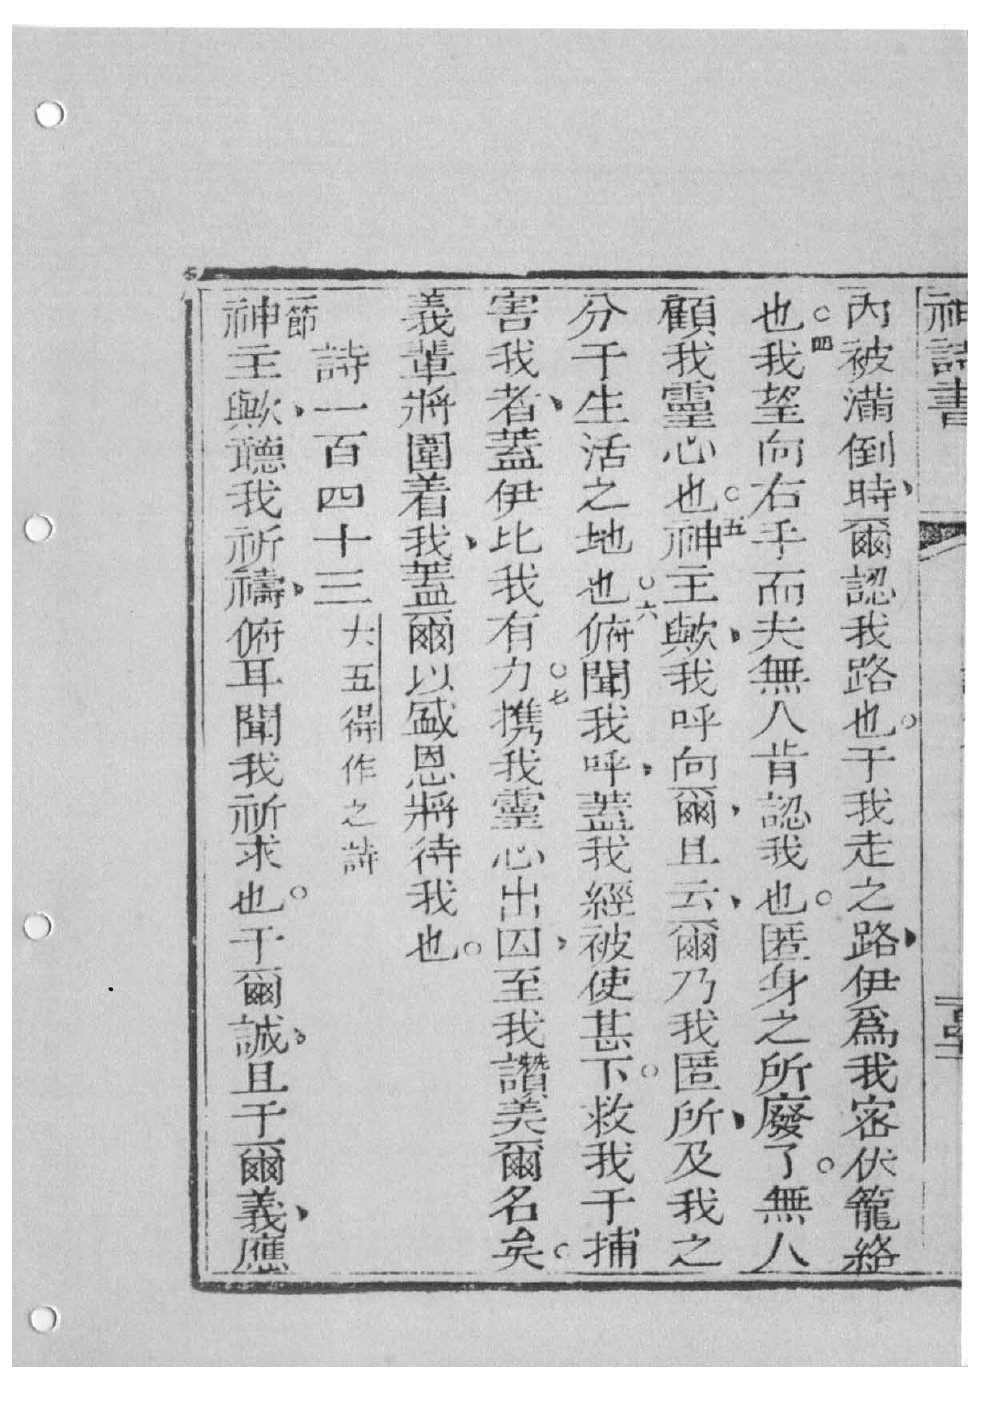 神詩書
內被滿倒時、爾認我路也。于我走之路、伊爲我密伏籠絡
也○四我望向右手而夫無人肯認我也。匿身之所廢了。無人
顧我靈心也。○五神主歟、我呼向爾、且云、爾乃我匿所、及我之
分于生活之地也○六俯聞我呼、蓋我經被使甚下。救我于捕
害我者、蓋伊比我有力○七携我靈心出囚、至我讚美爾名矣。
義輩將圍着我、蓋爾以盛恩將待我也。
詩一百四十三 大五得作之詩
一節神主歟、聽我祈禱、俯耳聞我祈求也。于爾誠、且于爾義、應